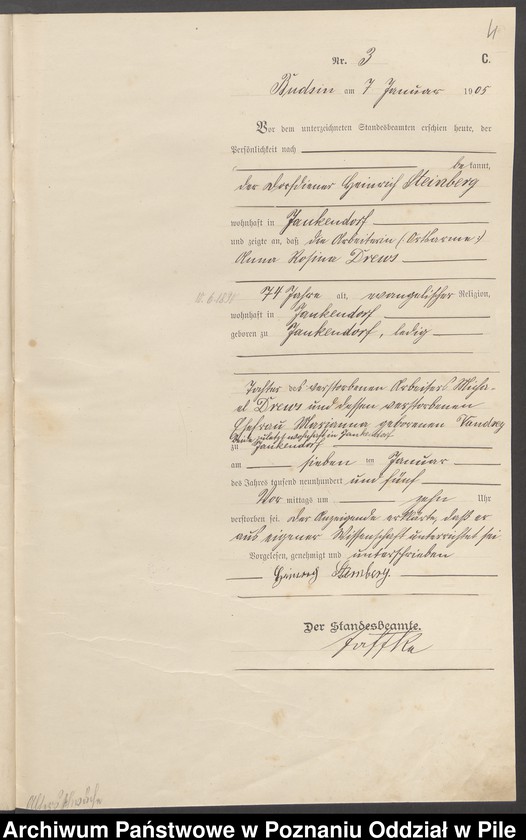 4
Nr. 3 C.
Budsin am 7 Januar 1905
Vor dem unterzeichneten Standesbeamten erschien heute, der
Persönlichkeit nach
be kannt,
der Dorfdiener Heinrich Steinberg
wohnhaft in Jankendorf
und zeigte an, daß die Arbeiterin (Ortsarme)
Anna Rosina Drews
74 Jahre alt, evangelischer Religion,
wohnhaft in Jankendorf
geboren zu Jankendorf, ledig
Tochter des verstorbenen Arbeiters Micha-
el Drews und dessen verstorbenen
Ehefrau Marjanna geborenen Vandrey
Beide zuletzt wohnhaft in Jankendorf
zu Jankendorf
am sieben ten Januar
des Jahres tausend neunhundert und fünf
Vor mittags um zehn Uhr
verstorben sei. Der Anzeigende erklärte, daß er
aus eigener Wissenschaft unterrichtet sei
Vorgelesen, genehmigt und unterschrieben
Heinrich Steinberg.
Der Standesbeamte.
Jaffke
Altersschwäche
Archiwum Państwowe w Poznaniu Oddział w Pile